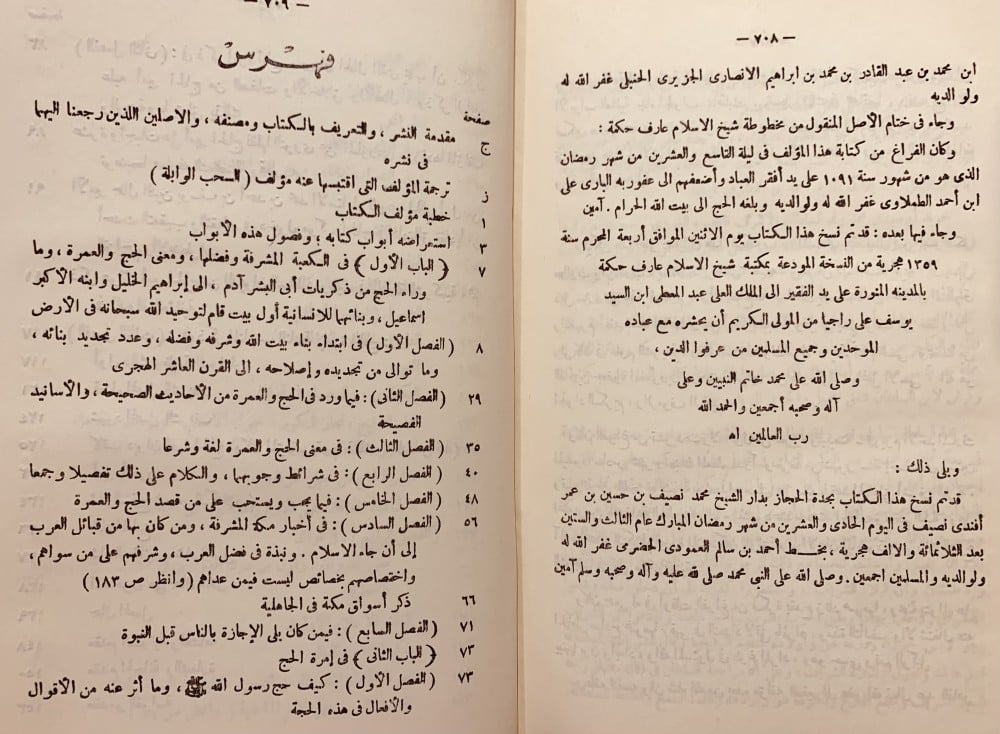 — ٧٠٨ —
ابن محمد بن عبد القادر بن محمد بن ابراهيم الانصارى الجزيرى الحنبلى غفر الله له
ولوالديه
وجاء فى ختام الأصل المنقول من مخطوطة شيخ الاسلام عارف حكمة :
وكان الفراغ من كتابة هذا المؤلف فى ليلة التاسع والعشرين من شهر رمضان
الذى هو من شهور سنة ١٠٩١ على يد أفقر العباد وأضعفهم الى عفو ربه البارى على
ابن أحمد الطملاوى غفر الله له ولوالديه وبلغه الحج الى بيت الله الحرام . آمين
وجاء فيها بعده : قد تم نسخ هذا الكتاب يوم الاثنين الموافق أربعة المحرم سنة
١٣٥٩ هجرية من النسخة المودعة بمكتبة شيخ الاسلام عارف حكمة
بالمدينه المنورة على يد الفقير الى الملك العلى عبد المعطى ابن السيد
يوسف على راجيا من المولى الكريم أن يحشره مع عباده
الموحدين وجميع المسلمين من عرفوا الدين ،
وصلى الله على محمد خاتم النبيين وعلى
آله وصحبه أجمعين والحمد الله
رب العالمين اه
ويلى ذلك :
قد تم نسخ هذا الكتاب بجدة الحجاز بدار الشيخ محمد نصيف بن حسين بن عمر
أفندى نصيف فى اليوم الحادى والعشرين من شهر رمضان المبارك عام الثالث والستين
بعد الثلاثمائة والالف هجرية ، بخط أحمد بن سالم العمودى الحضرمى غفر الله له
ولوالديه والمسلمين اجمعين . وصلى الله على النبي محمد صلى لله عليه وآله وصحبه وسلم آمين
— ٧٠٩ —
فهرس
صفحة
ج مقدمة النشر ، والتعريف بالكتاب ومصنفه ، والاصلين اللذين رجعنا اليهما
فى نشره
ز ترجمة المؤلف التى اقتبسها عنه مؤلف ( السحب الوابلة )
١ خطبة مؤلف الكتاب
٣ استعراضه أبواب كتابه ؛ وفصول هذه الأبواب
٧ ﴿ الباب الأول ﴾ فى الكعبة المشرفة وفضلها ، ومعنى الحج والعمرة ، وما
وراء الحج من ذكريات أبى البشر آدم ، الى إبراهيم الخليل وابنه الأكبر
اسماعيل ، وبنائهما للانسانية أول بيت قام لتوحيد الله سبحانه فى الأرض
٨ ( الفصل الأول ) فى ابتداء بناء بيت الله وشرفه وفضله ، وعدد تجديد بنائه ،
وما توالى من تجديده وإصلاحه ، الى القرن العاشر الهجرى
٢٩ ( الفصل الثانى ) : فيما ورد فى الحج والعمرة من الأحاديث الصحيحة ، والأسانيد
الفصيحة
٣٥ ( الفصل الثالث ) : فى معنى الحج والعمرة لغة وشرعا
٤٠ ( الفصل الرابع ) : فى شرائط وجوبهما ، والكلام على ذلك تفصيلا وجمعا
٤٨ ( الفصل الخامس ) : فيما يجب ويستحب على من قصد الحج والعمرة
٥٦ ( الفصل السادس ) : فى أخبار مكة المشرفة ، ومن كان بها من قبائل العرب
إلى أن جاء الاسلام . ونبذة فى فضل العرب ، وشرفهم على من سواهم ،
واختصاصهم بخصائص ليست فيمن عداهم ( وانظر ص ١٨٣ )
٦٦ ذكر أسواق مكة فى الجاهلية
٧١ ( الفصل السابع ) : فيمن كان يلى الإجازة بالناس قبل النبوة
٧٣ ﴿ الباب الثانى ﴾ فى إمرة الحج
٧٣ ( الفصل الأول ) : كيف حج رسول الله ﷺ ، وما أثر عنه من الأقوال
والأفعال فى هذه الحجة